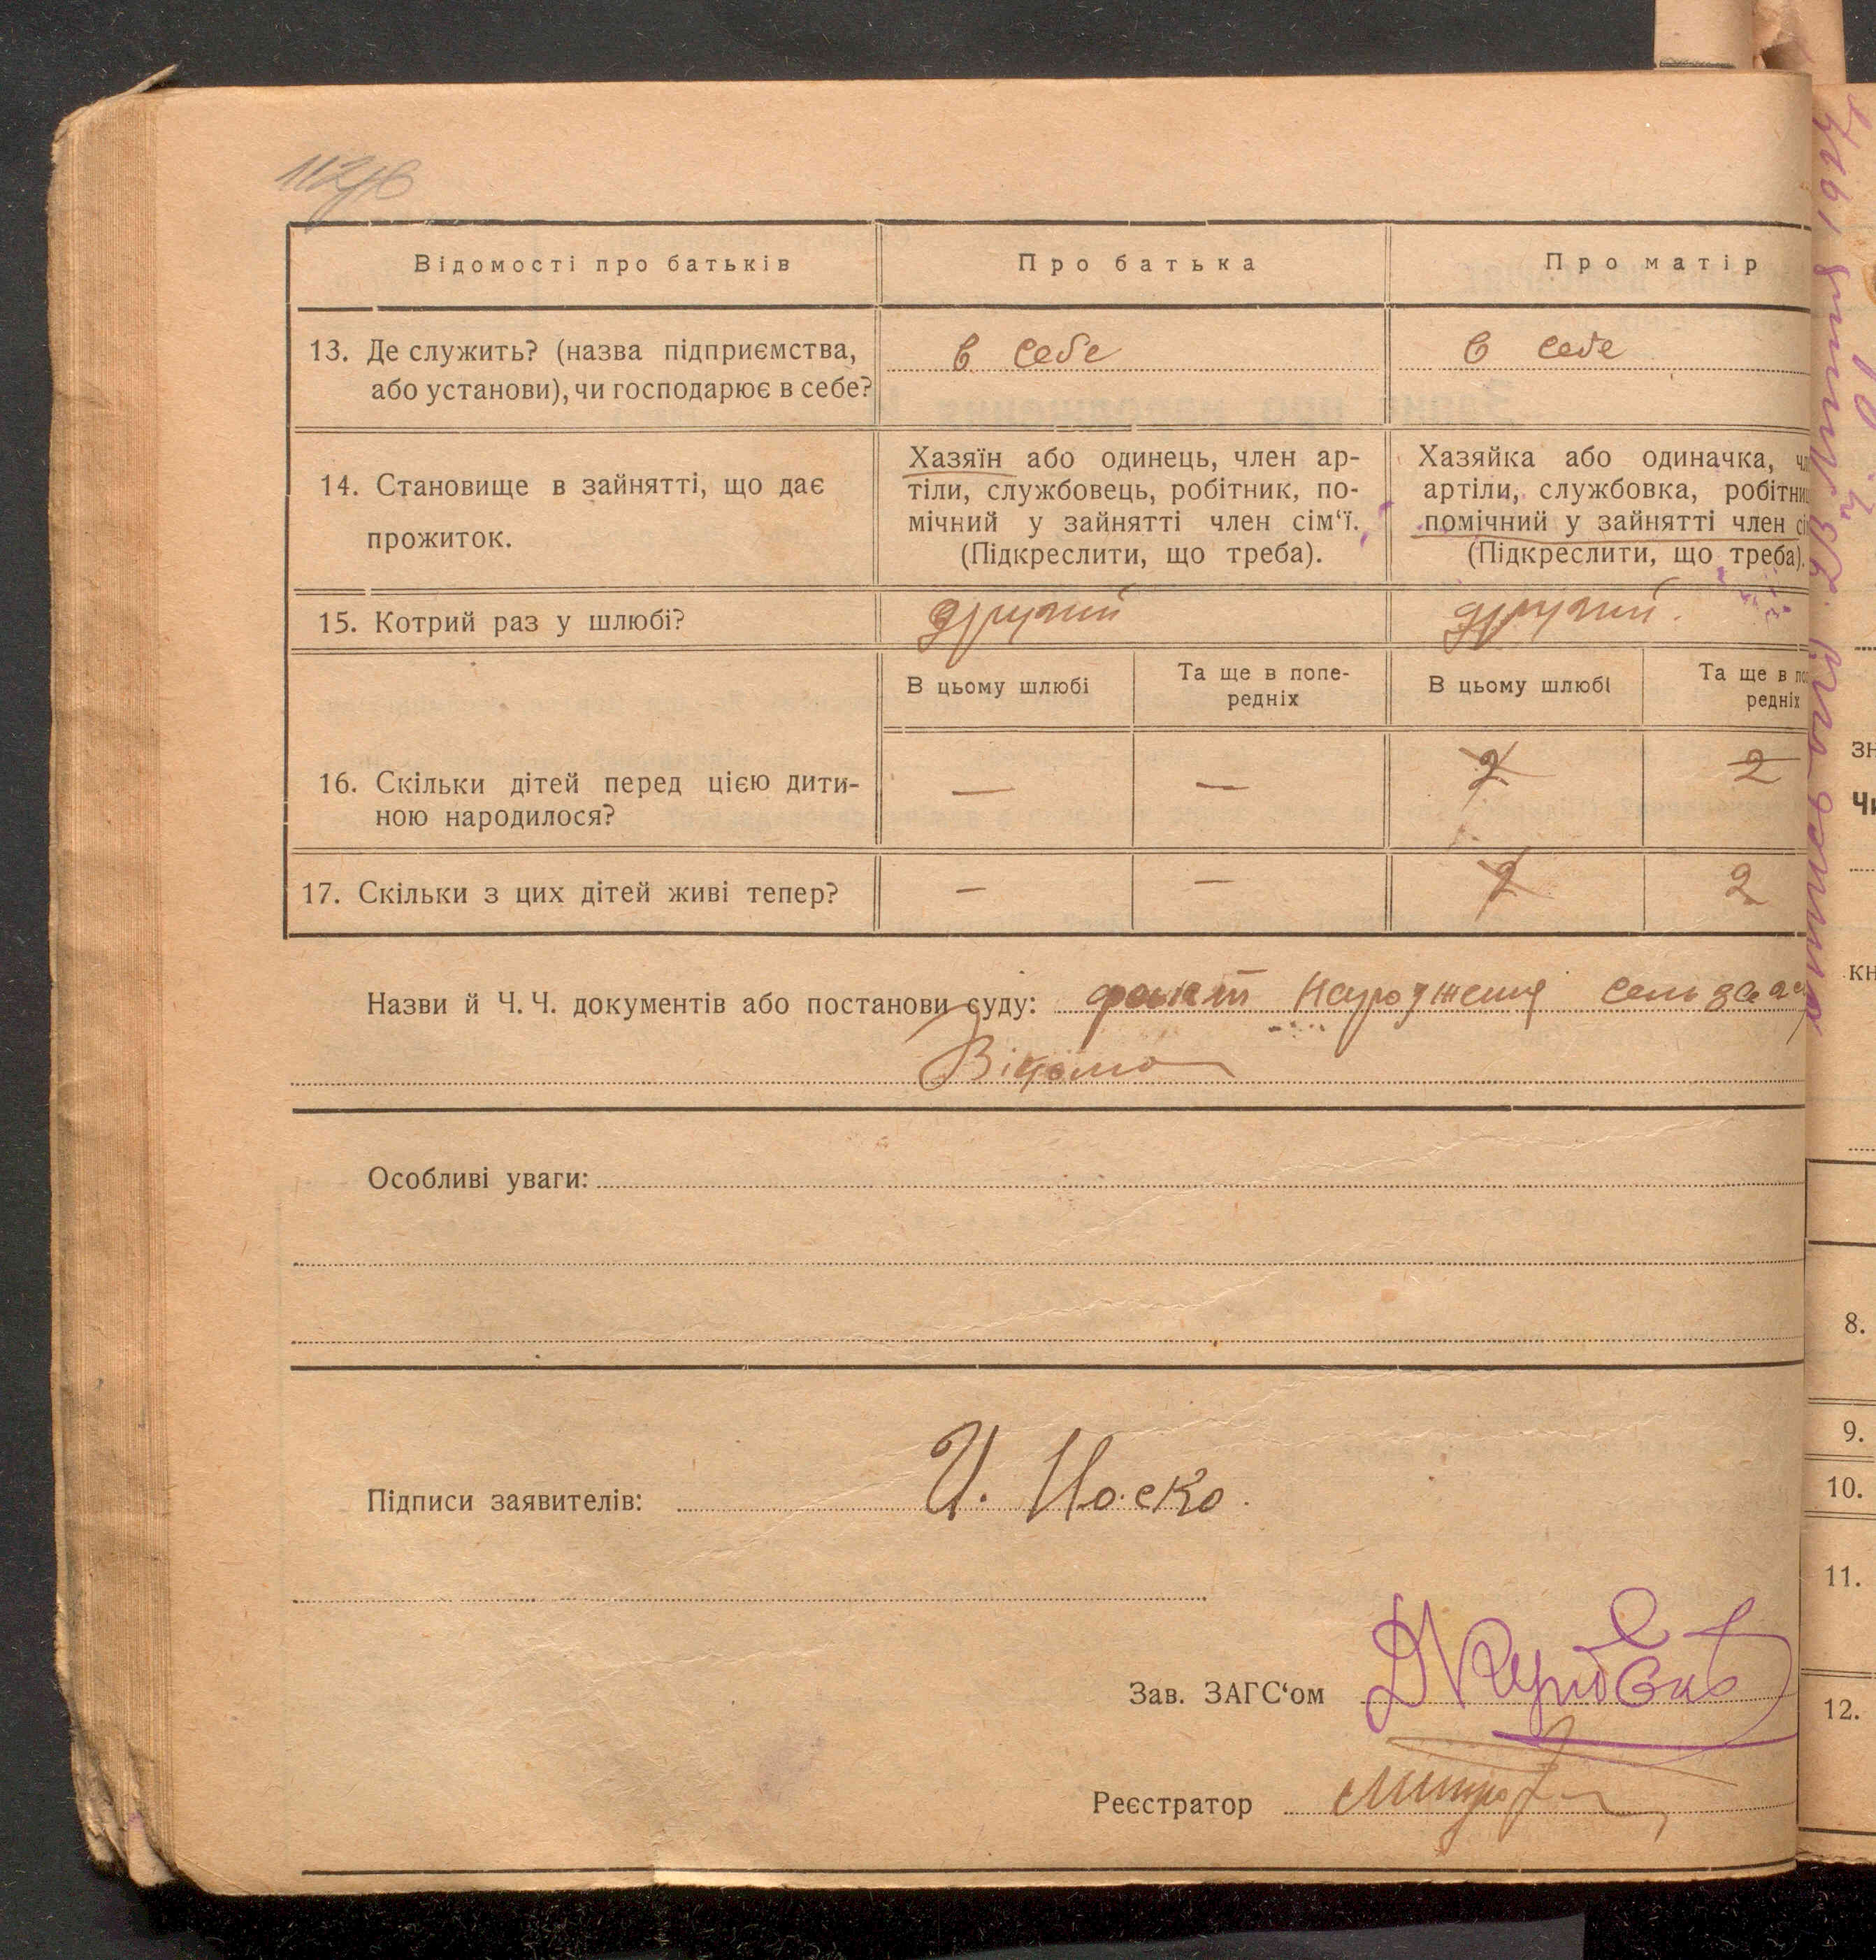 112зв
Відомості про батьків
Про батька
Про матір
13. Де служить? (назва підприємства,
або установи), чи господарює в себе?
в себе
в себе
14. Становище в зайнятті, що дає
прожиток.
Хазяїн або одинець, член ар-
тіли, службовець, робітник, по-
мічний у зайнятті член сім‘ї.
(Підкреслити, що треба).
Хазяйка або одиначка, чл
артіли, службовка, робітни
помічний у зайнятті член сі
(Підкреслити, що треба).
15. Котрий раз у шлюбі?
другий
другий.
В цьому шлюбі
Та ще в попе-
редніх
В цьому шлюбі
Та ще в по
редніх
16. Скільки дітей перед цією дити-
ною народилося?
—
—
2
2
17. Скільки з цих дітей живі тепер?
—
—
2
2
Назви й Ч. Ч. документів або постанови суду: факт народження
Відомо
Особливі уваги:
Підписи заявителів: И. Носко.
Зав. ЗАГС‘ом
Реєстратор
зн
Чи
кн
8.
9.
10.
11.
12.